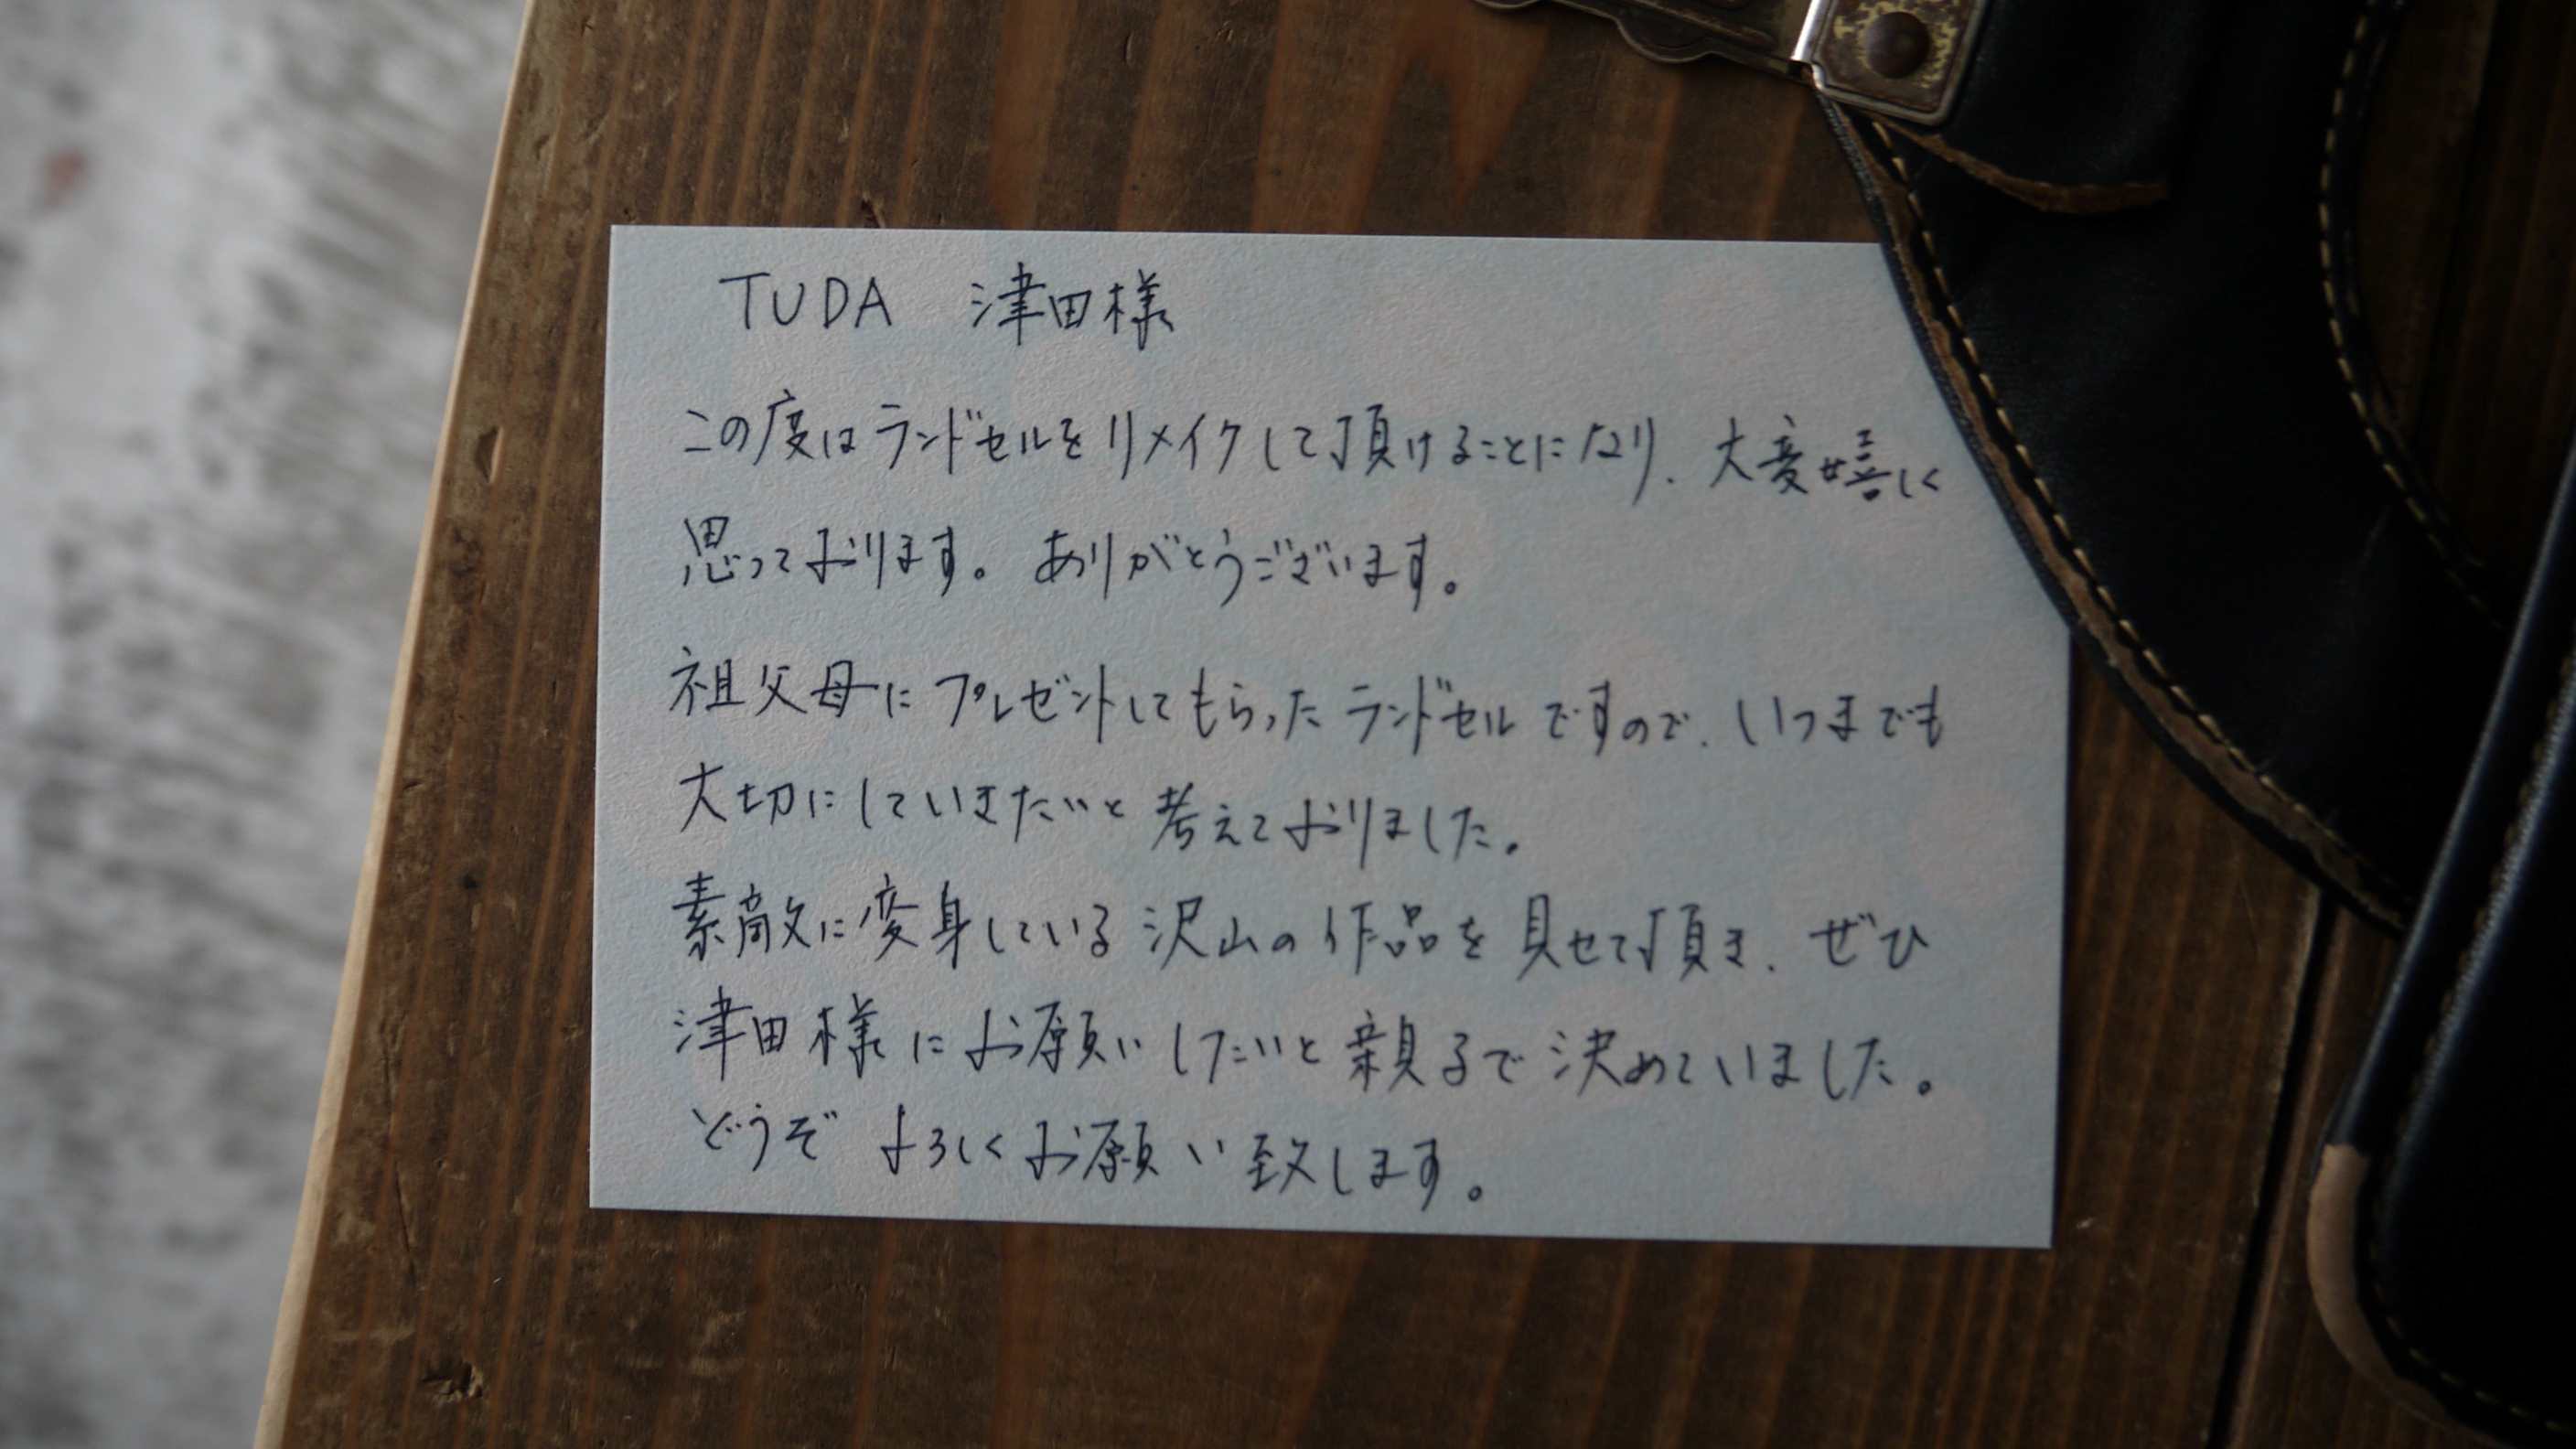 TUDA 津田様
この度はランドセルをリメイクして頂けることになり、大変嬉しく
思っております。ありがとうございます。
祖父母にプレゼントしてもらったランドセルですので、いつまでも
大切にしていきたいと考えておりました。
素敵に変身している沢山の作品を見せて頂き、ぜひ
津田様にお願いしたいと親子で決めていました。
どうぞよろしくお願い致します。